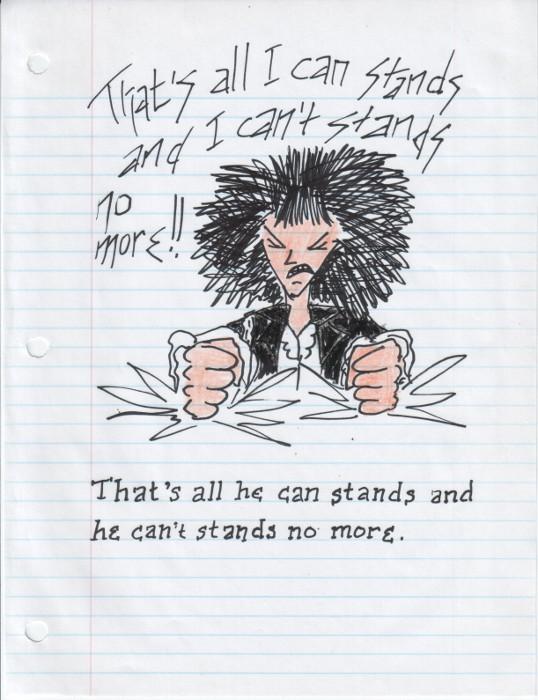 That's all I can stands
and I can't stands
no
more!!
That's all he can stands and
he can't stands no more.